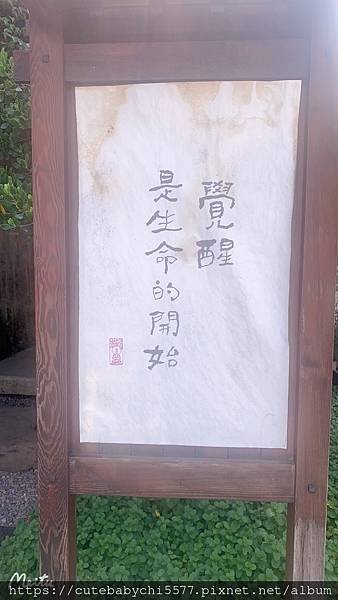 覺醒
是生命的開始
https://cutebabychi5577.pixnet.net/album